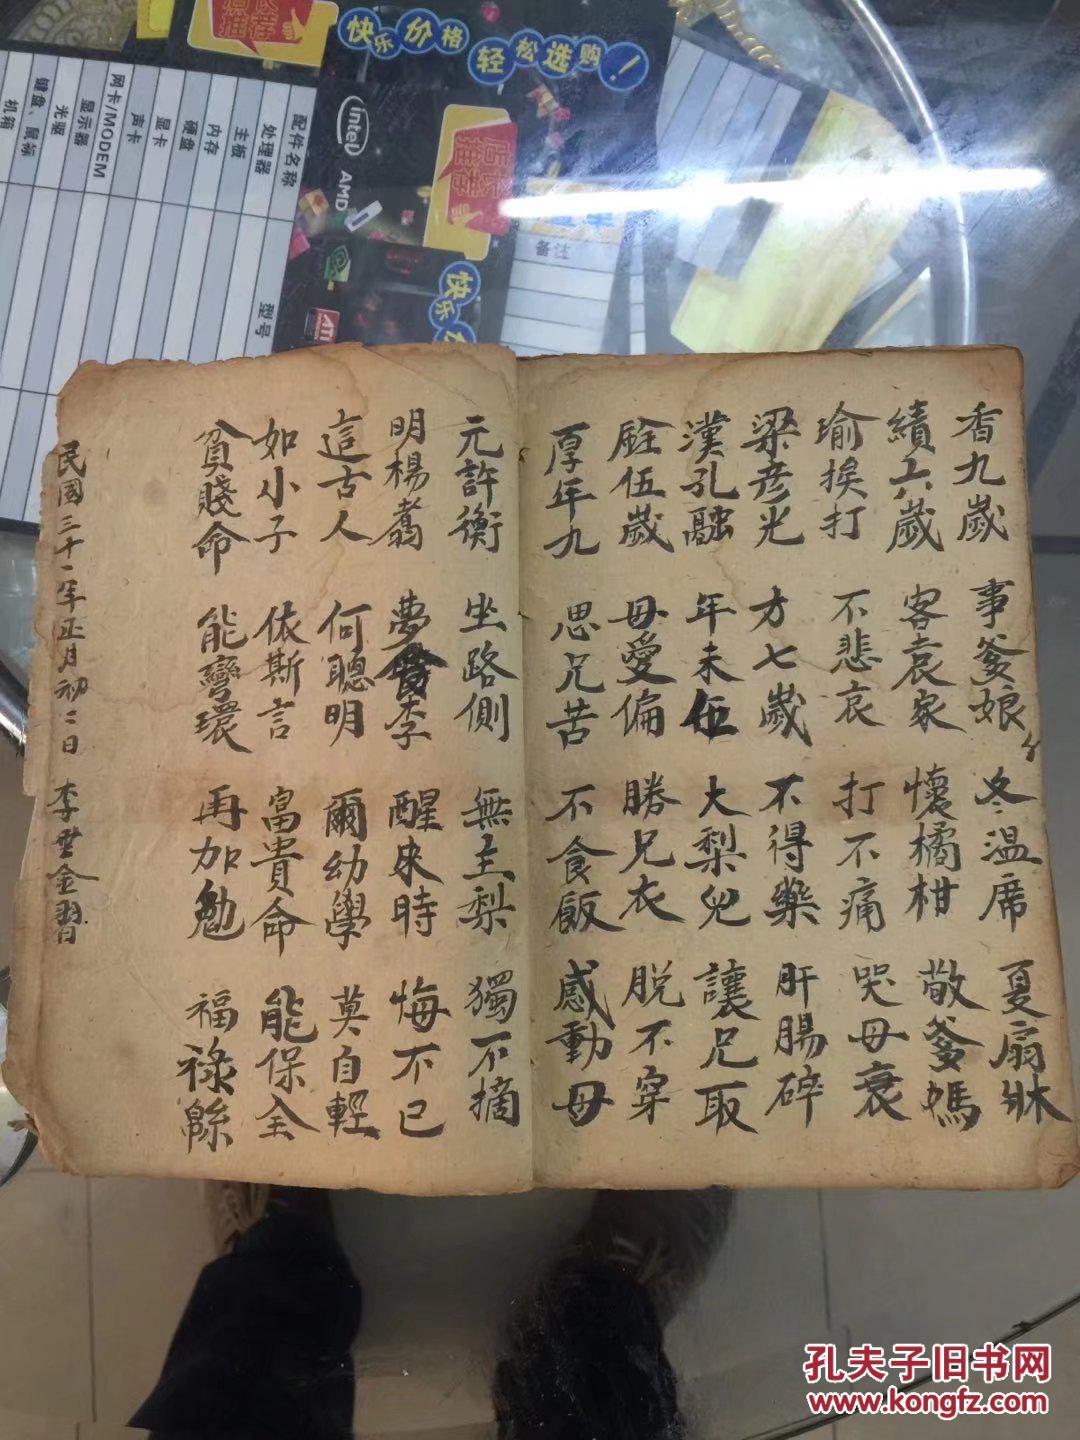 香九歲 事爹娘 冬温席 夏扇牀
績六歲 客袁家 懷橘柑 敬爹媽
瑜挨打 不悲哀 打不痛 哭母衰
梁彦光 方七歲 不得藥 肝腸碎
漢孔融 年未伍 大梨兒 讓兄取
伍歲 母愛偏 勝兄衣 脱不穿
厚年九 思兄苦 不食飯 感動母
元許衡 坐路側 無主梨 獨不摘
明楊翥 夢食李 醒來時 悔不已
這古人 何聰明 爾幼學 莫自輕
如小子 依斯言 富貴命 能保全
貧賤命 能彎環 再加勉 福祿綿
民國三十一年正月初二日 李世金習
快乐价格
轻松选购!
intel
AMD
店长推荐
备注
快乐
ATI
配件名称
处理器
主板
内存
硬盘
显卡
声卡
网卡/MODEM
显示器
光驱
键盘、鼠标
机箱
型号
孔夫子旧书网
www.kongfz.com